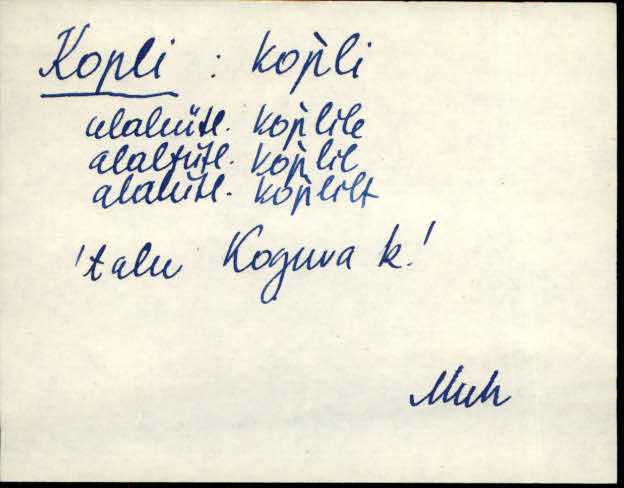 Kopli : kop̀li
alalütl. kop̀lile
alaltütl. kop̀lil
alalütl. kop̀lilt
'talu Koguva k.'
Muh